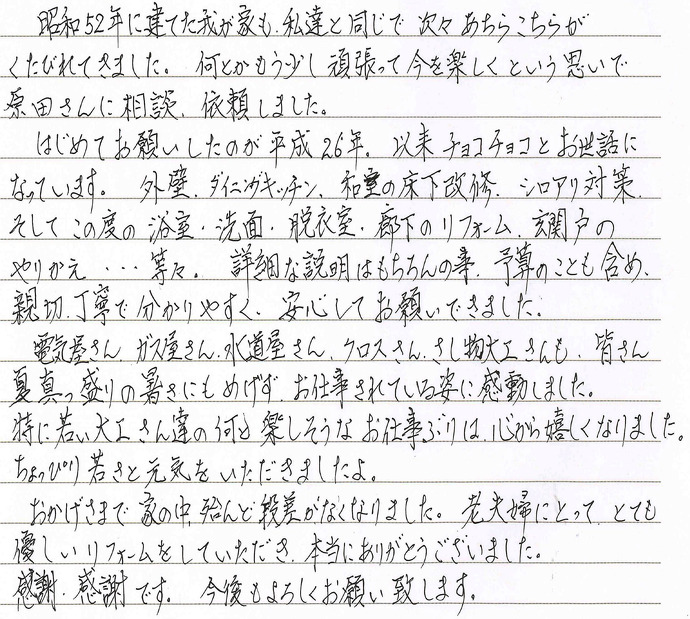 昭和52年に建てた我が家も、私達と同じで 次々あちらこちらが
くたびれてきました。 何とかもう少し 頑張って今を楽しくという思いで
原田さんに相談、依頼しました。
はじめてお願いしたのが平成26年。 以来チョコチョコとお世話に
なっています。 外壁、ダイニングキッチン、和室の床下改修、シロアリ対策、
そしてこの度の浴室・洗面・脱衣室・廊下のリフォーム、玄関戸の
やりかえ・・・等々。 詳細な説明はもちろんの事、予算のことも含め、
親切、丁寧で分かりやすく、安心してお願いできました。
電気屋さん、ガス屋さん、水道屋さん、クロスさん、さし物大工さんも、皆さん
夏真っ盛りの暑さにもめげず、お仕事されている姿に感動しました。
特に若い大工さん達の何と楽しそうなお仕事ぶりは、心から嬉しくなりました。
ちょっぴり若さと元気をいただきましたよ。
おかげさまで家の中、殆んど段差がなくなりました。 老夫婦にとって、とても
優しいリフォームをしていただき、本当にありがとうございました。
感謝・感謝です。 今後もよろしくお願い致します。